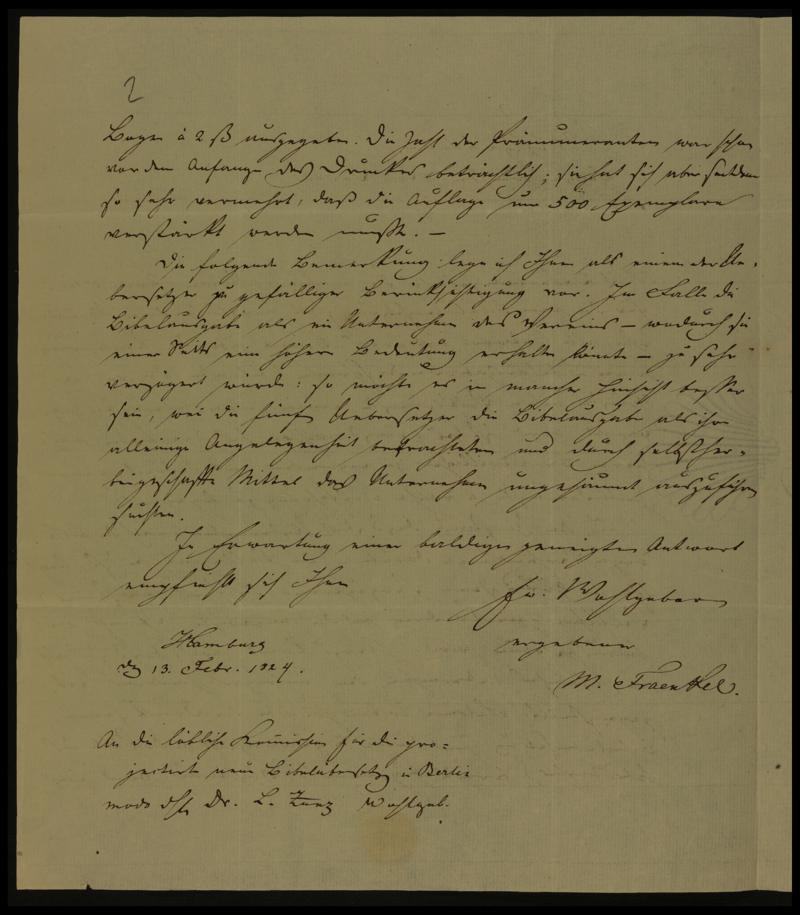 2
Bogen à 2 ß ausgegeben. Die Zahl der Pränumeranten war schon
vor dem Anfange des Druckes beträchtlich; sie hat sich aber seitdem
so sehr vermehrt, daß die Auflage um 500 Exemplare
verstärkt werden mußte. —
Die folgende Bemerkung lege ich Ihnen als einem der Ue-
bersetzer zu gefälliger Berücksichtigung vor. Im Falle die
Bibelausgabe als ein Unternehmen des Vereins — wodurch sie
einer Seits eine höhere Bedeutung erhalten könnte — zu sehr
verzögert würde: so möchte es in mancher Hinsicht besser
sein, wenn die fünf Uebersetzer die Bibelausgabe als ihre
alleinige Angelegenheit betrachteten und durch selbst her-
beigeschaffte Mittel das Unternehmen ungesäumt auszuführen
suchten.
In Erwartung einer baldigen geneigten Antwort
empfiehlt sich Ihnen
Ew. Wohlgeboren
Hamburg
ergebener
den 13. Febr. 1824.
M. Fraenkel.
An die löbliche Kommission für die pro=
jectirte neue Bibelübersetzg in Berlin
modo Dr. L. Zunz Wohlgeb.